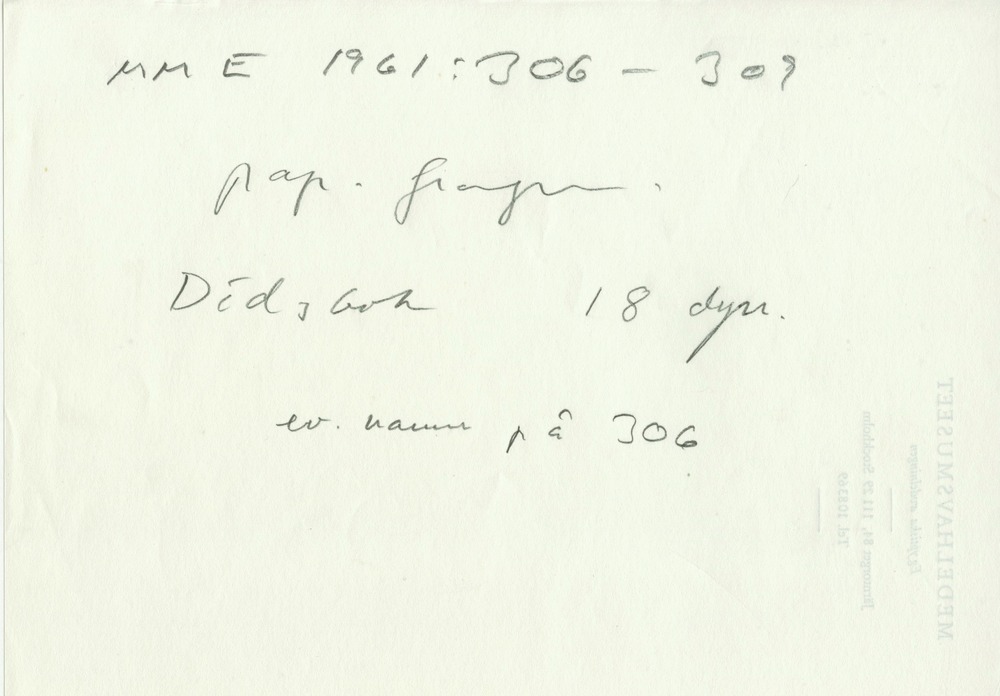 MM E 1961:306 - 309
pap. fragm.
Dödsbok 18 dyn.
ev. namn på 306
MEDELHAVSMUSEET
Egyptiska avdelningen
Järntorget 84, 111 29 Stockholm
Tel. 108369